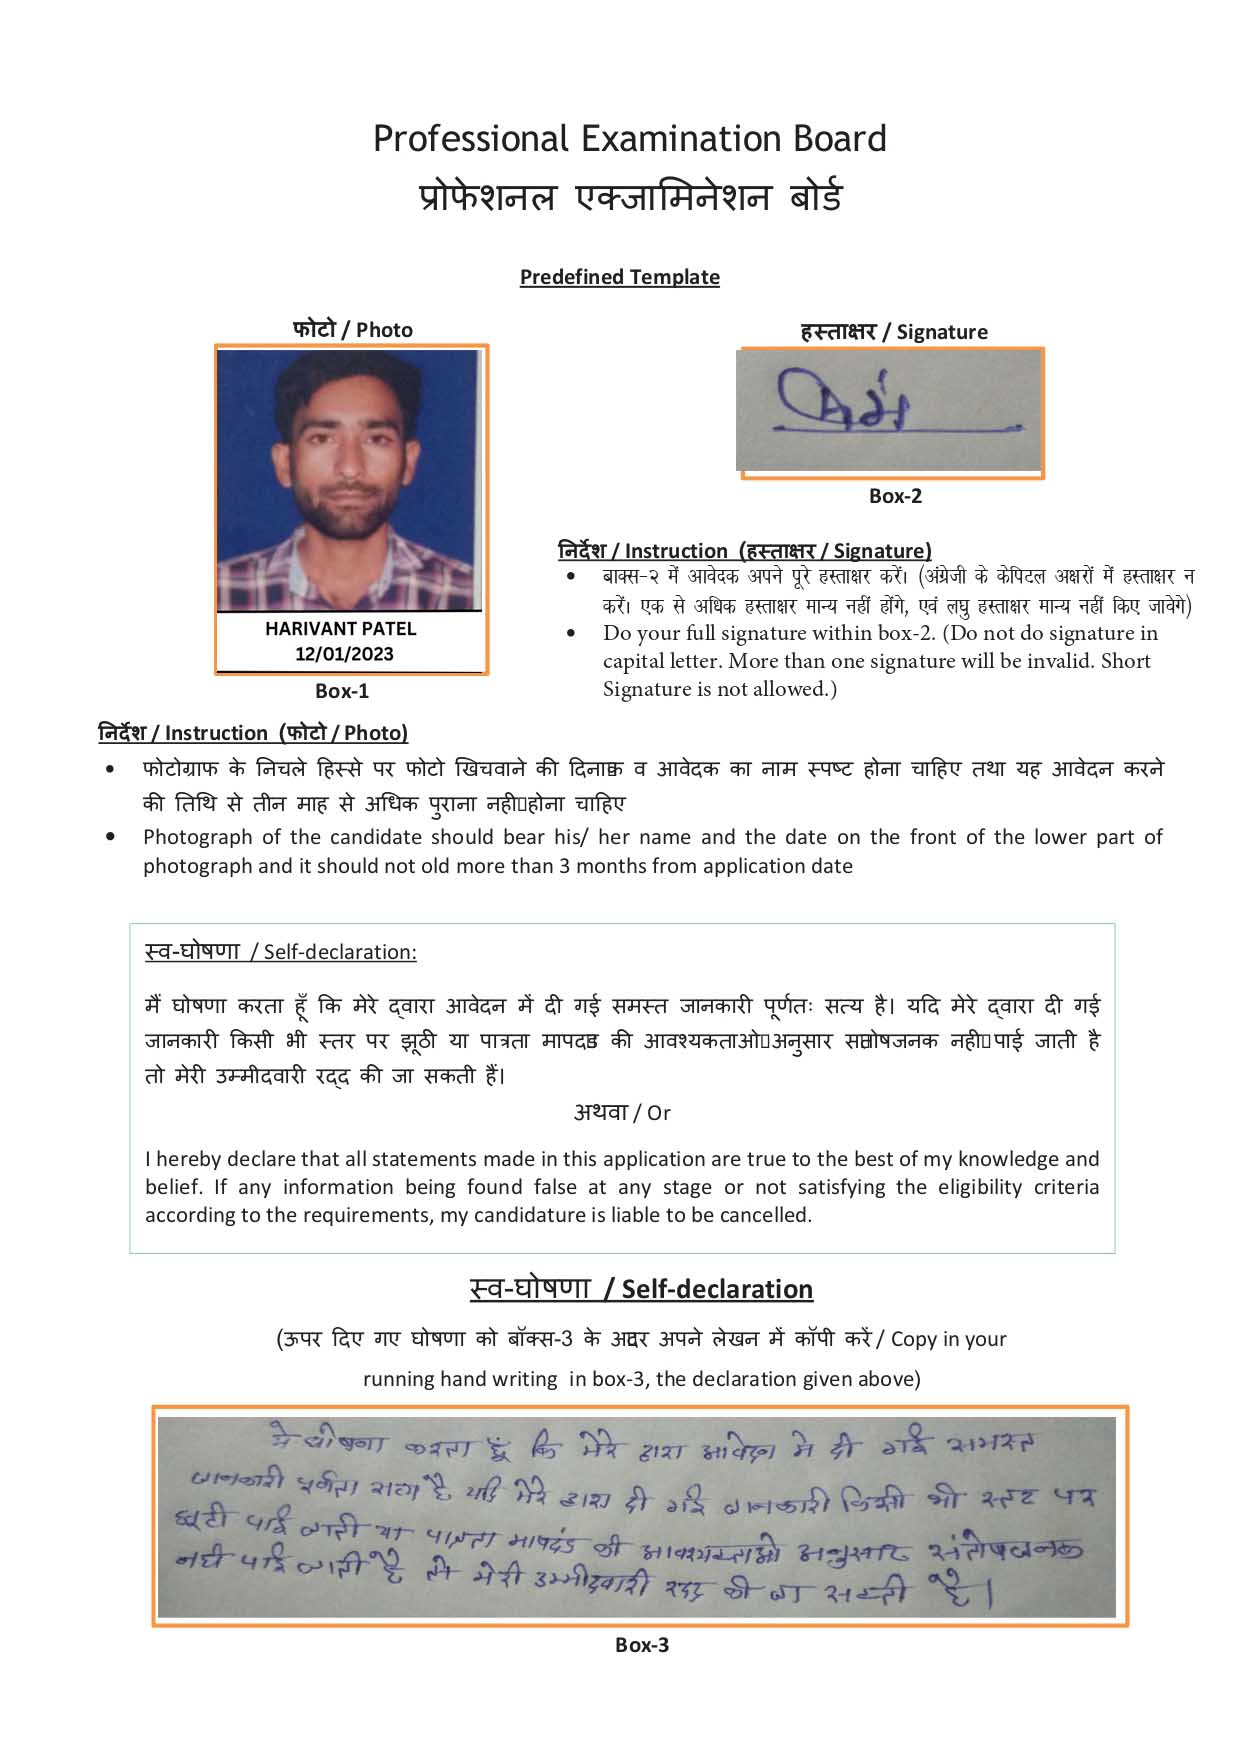 Professional Examination Board
प्रोफेशनल एक्जामिनेशन बोर्ड
Predefined Template
फोटो / Photo
HARIVANT PATEL
12/01/2023
Box-1
हस्ताक्षर / Signature
Box-2
निर्देश / Instruction (हस्ताक्षर / Signature)
• बाक्स-२ में आवेदक अपने पूरे हस्ताक्षर करें। (अंग्रेजी के केपिटल अक्षरों में हस्ताक्षर न
करें। एक से अधिक हस्ताक्षर मान्य नहीं होंगे, एवं लघु हस्ताक्षर मान्य नहीं किए जावेगे)
• Do your full signature within box-2. (Do not do signature in
capital letter. More than one signature will be invalid. Short
Signature is not allowed.)
निर्देश / Instruction (फोटो / Photo)
• फोटोग्राफ के निचले हिस्से पर फोटो खिचवाने की दिनाक व आवेदक का नाम स्पष्ट होना चाहिए तथा यह आवेदन करने
की तिथि से तीन माह से अधिक पुराना नही होना चाहिए
• Photograph of the candidate should bear his/ her name and the date on the front of the lower part of
photograph and it should not old more than 3 months from application date
स्व-घोषणा / Self-declaration:
मैं घोषणा करता हूँ कि मेरे द्वारा आवेदन में दी गई समस्त जानकारी पूर्णतः सत्य है। यदि मेरे द्वारा दी गई
जानकारी किसी भी स्तर पर झूठी या पात्रता मापदड की आवश्यकताओ अनुसार सतोषजनक नही पाई जाती है
तो मेरी उम्मीदवारी रद्द की जा सकती हैं।
अथवा / Or
I hereby declare that all statements made in this application are true to the best of my knowledge and
belief. If any information being found false at any stage or not satisfying the eligibility criteria
according to the requirements, my candidature is liable to be cancelled.
स्व-घोषणा / Self-declaration
(ऊपर दिए गए घोषणा को बॉक्स-3 के अदर अपने लेखन में कॉपी करें / Copy in your
running hand writing in box-3, the declaration given above)
मे घोषणा करता हूँ कि मेरे द्वारा आवेदन मे दी गई समस्त
जानकारी पूर्णता सत्य है यदि मेरे द्वारा दी गई जानकारी किसी भी स्तर पर
झूटी पाई जाती या पात्रता मापदंड की आवश्यकताओ अनुसार संतोषजनक
नही पाई जाती है तो मेरी उम्मीदवारी रद्द की जा सकती है।
Box-3